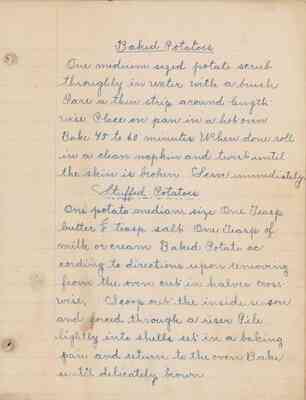 Baked Potatoes
One medium sized potato scrub
throughly in water with a brush
Pare a thin strip around length
wise Place on pan in a hot oven
Bake 45 to 60 minutes When done roll
in a clean napkin and twist until
the skin is broken Serve immediately
Stuffed Potatoes
One potato medium size One Teasp
butter teasp salt One Teasp of
milk or cream Baked Potato ac
cording to directions upon removing
from the oven cut in halves cross
wise. Scoop out the inside
and forced through a riser Pile
lightly into shells set in a baking
pan and return to the oven Bake
until delicately brown